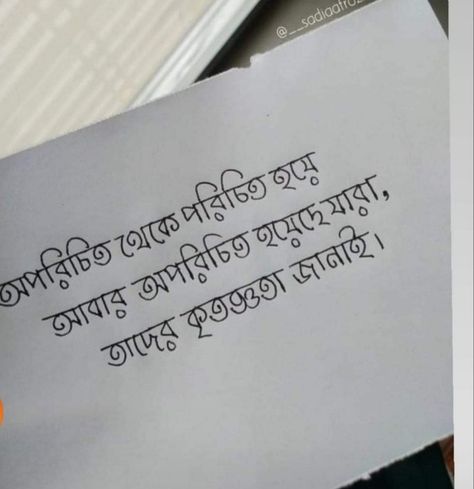 @__sadiaafro
অপরিচিত থেকে পরিচিত হয়ে
আবার অপরিচিত হয়েছে যারা,
তাদের কৃতজ্ঞতা জানাই।